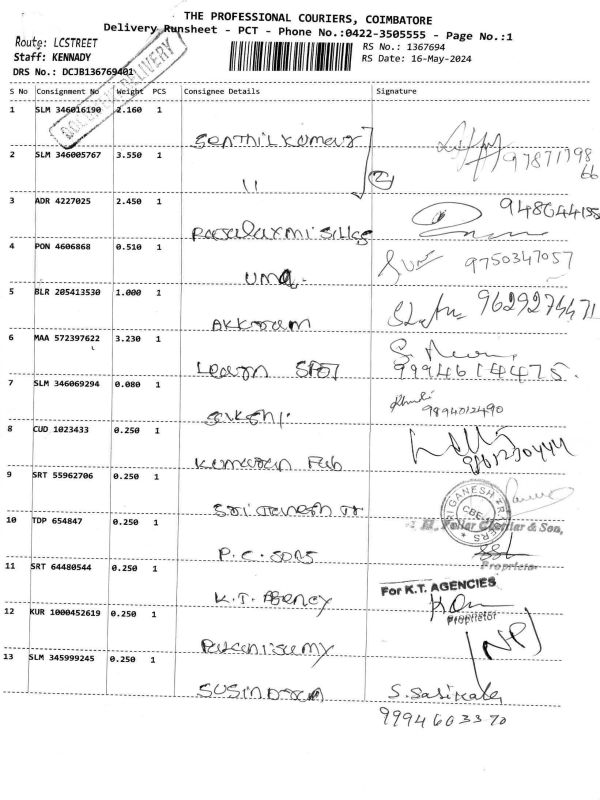 THE PROFESSIONAL COURIERS, COIMBATORE
Delivery Runsheet - PCT - Phone No.:0422-3505555 - Page No.:1
Route: LCSTREET
RS No.: 1367694
Staff: KENNADY
RS Date: 16-May-2024
DRS No.: DCJB136769401
S No Consignment No Weight PCS Consignee Details Signature
1 SLM 346016190 2.160 1
Senthilkumar
2 SLM 346005767 3.550 1
11
3 ADR 4227025 2.450 1
Rasalaxmi Silks
4 PON 4606868 0.510 1 9750347057
uma.
5 BLR 205413530 1.000 1 9629274471
6 MAA 572397622 3.230 1
9994614475.
7 SLM 346069294 0.080 1
9894012490
sakshi.
8 CUD 1023433 0.250 1
Kumaran Fab
9 SRT 55962706 0.250 1
Sri Ganesh Tr
10 TDP 654847 0.250 1
& Son,
P.C. Sons
Proprietor
11 SRT 64480544 0.250 1
For K.T. AGENCIES
K.T. Agency
Proprietor
12 KUR 1000452619 0.250 1
Palanisamy
13 SLM 345999245 0.250 1
S. Sasikala
9994603370